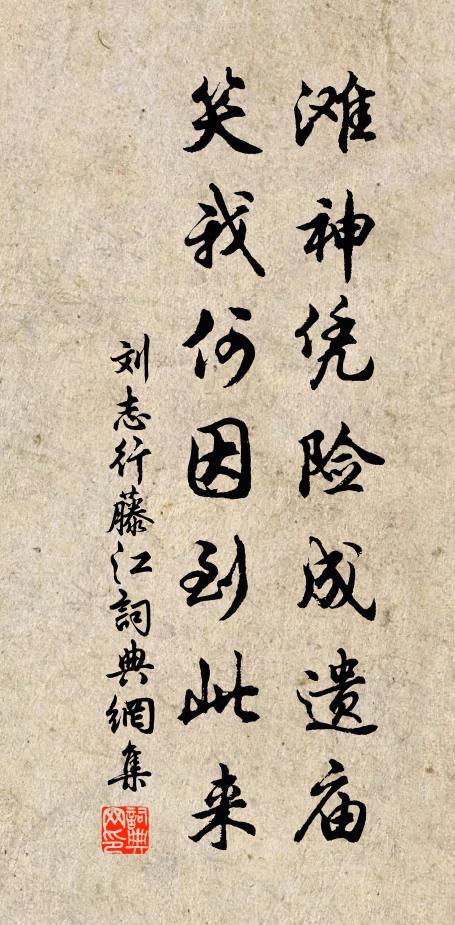 滩神凭险成遗庙
笑我何因到此来
刘志行藤江詞典網集
詞典网印